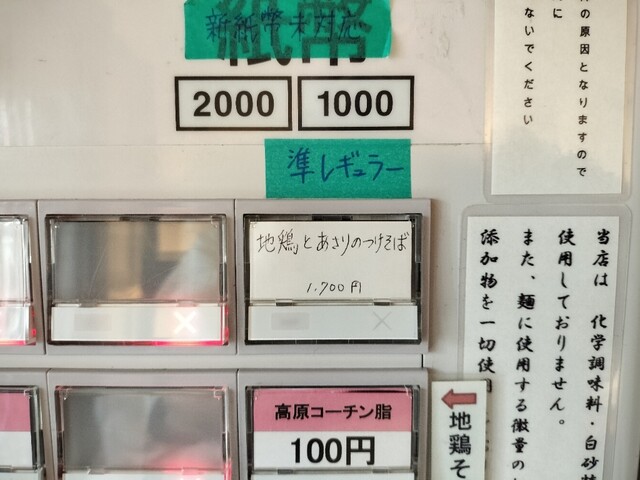 新紙幣未対応
紙幣
2000
1000
準レギュラー
地鶏とあさりのつけそば
1,700円
高原コーチン脂
100円
の原因となりますので
に
ないでください
当店は 化学調味料・白砂糖
使用しておりません。
また、麺に使用する微量の
添加物を一切使用
地鶏そ